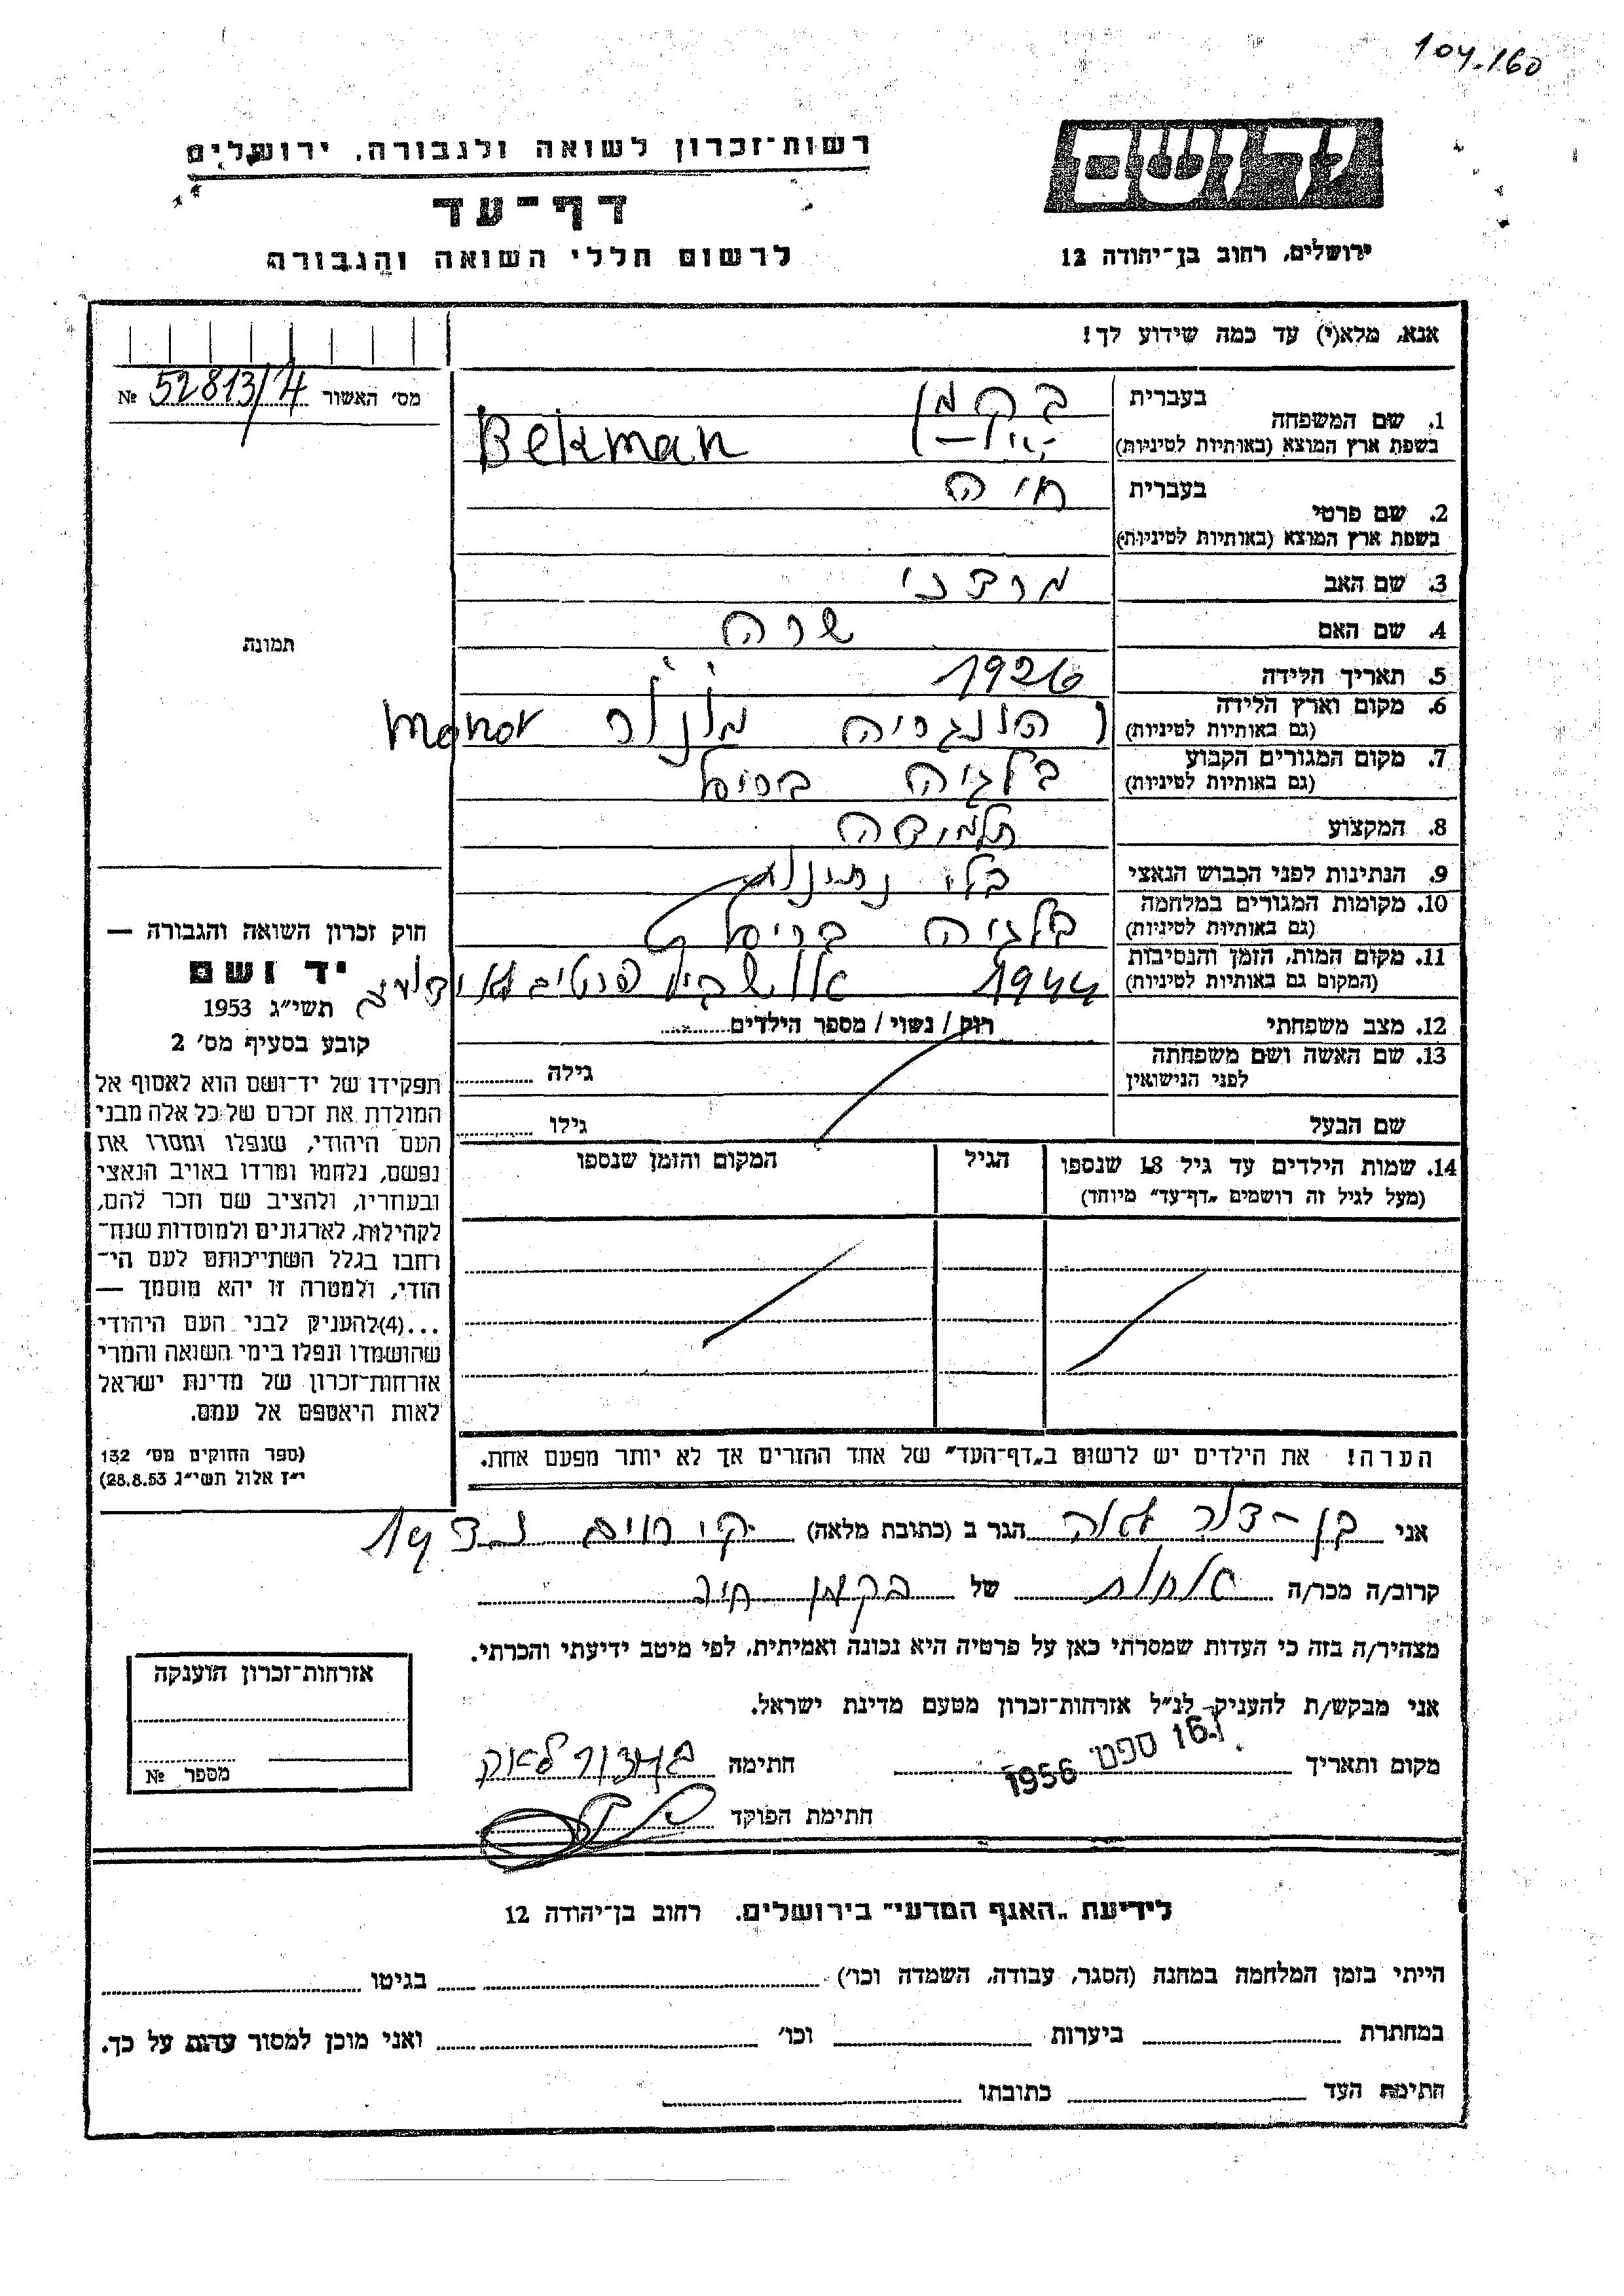 104.160
רשות־זכרון לשואה ולגבורה, ירושלים
דף־עד
לרשום חללי השואה והגבורה
יד ושם
ירושלים, רחוב בן־יהודה 12
אנא, מלא(י) עד כמה שידוע לך!
מס׳ האשור 52813/4 №
בעברית בקמן
1. שם המשפחה
בשפת ארץ המוצא (באותיות לטיניות) Bekman
בעברית חיה
2. שם פרטי
בשפת ארץ המוצא (באותיות לטיניות)
3. שם האב מרדכי
4. שם האם שרה
5. תאריך הלידה 1926
6. מקום וארץ הלידה הונגריה
(גם באותיות לטיניות)
7. מקום המגורים הקבוע בלגיה בריסל
(גם באותיות לטיניות)
8. המקצוע תלמידה
9. הנתינות לפני הכבוש הנאצי בלי נתינות
10. מקומות המגורים במלחמה בלגיה בריסל
(גם באותיות לטיניות)
11. מקום המות, הזמן והנסיבות 1944 אושביץ
(המקום גם באותיות לטיניות)
12. מצב משפחתי רווק / נשוי / מספר הילדים
13. שם האשה ושם משפחתה
לפני הנישואין גילה
שם הבעל גילו
תמונה
חוק זכרון השואה והגבורה —
יד ושם
תשי״ג 1953
קובע בסעיף מס׳ 2
תפקידו של יד־ושם הוא לאסוף אל
המולדת את זכרם של כל אלה מבני
העם היהודי, שנפלו ומסרו את
נפשם, נלחמו ומרדו באויב הנאצי
ובעוזריו, ולהציב שם וזכר להם,
לקהילות, לארגונים ולמוסדות שנח־
רבו בגלל השתייכותם לעם הי־
הודי, ולמטרה זו יהא מוסמך —
...(4)להעניק לבני העם היהודי
שהושמדו ונפלו בימי השואה והמרי
אזרחות־זכרון של מדינת ישראל
לאות היאספם אל עמם.
(ספר החוקים מס׳ 132
י״ז אלול תשי״ג 28.8.53)
14. שמות הילדים עד גיל 18 שנספו הגיל המקום והזמן שנספו
(מעל לגיל זה רושמים „דף־עד״ מיוחד)
הערה! את הילדים יש לרשום ב„דף־העד״ של אחד ההורים אך לא יותר מפעם אחת.
אני בן־דור לאה הגר ב (כתובת מלאה)
קרוב/ה מכר/ה אחות של בקמן חיה
מצהיר/ה בזה כי העדות שמסרתי כאן על פרטיה היא נכונה ואמיתית, לפי מיטב ידיעתי והכרתי.
אני מבקש/ת להעניק לנ״ל אזרחות־זכרון מטעם מדינת ישראל.
מקום ותאריך 16 ספט 1956 חתימה בן־דור לאה
חתימת הפוקד
אזרחות־זכרון הוענקה
מספר №
לידיעת „האגף המדעי״ בירושלים. רחוב בן־יהודה 12
הייתי בזמן המלחמה במחנה (הסגר, עבודה, השמדה וכו׳) בגיטו
במחתרת ביערות וכו׳ ואני מוכן למסור עדות על כך.
חתימת העד כתובתו